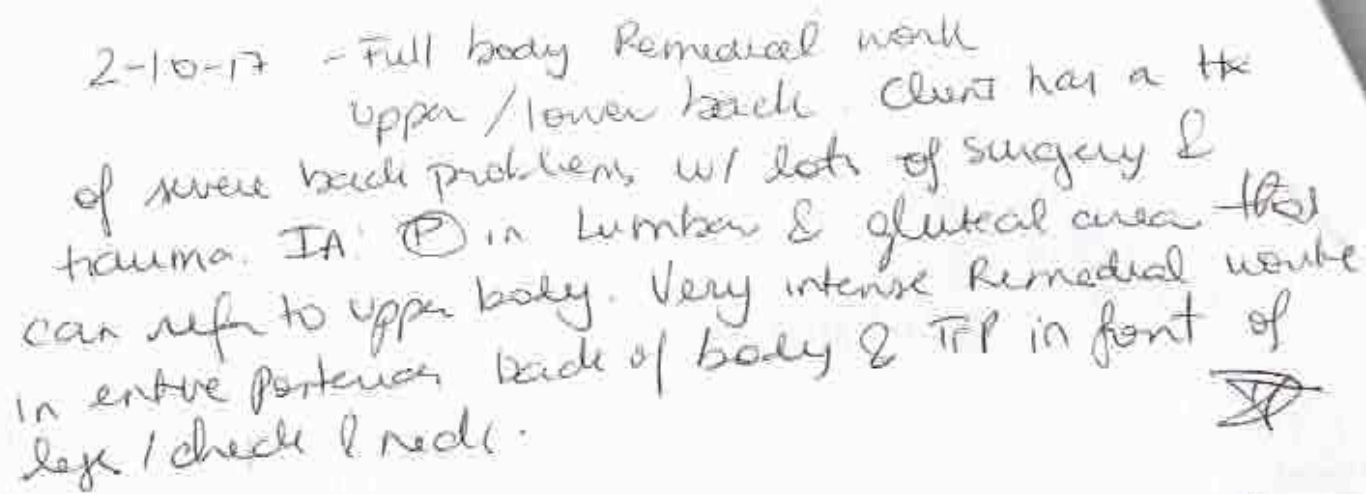 2-10-17 - Full body Remedial work
upper / lower back. Client has a Hx
of severe back problems w/ lots of surgery &
trauma. IA: Ⓟ in Lumbar & gluteal area that
can refer to upper body. Very intense Remedial worke
in entire Posterior back of body & TrP in font of
legs / & neck.